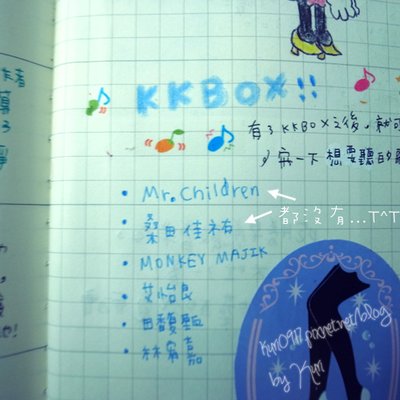 KKBOX!!
有了KKBOX之後,就可
寫一下想要聽的
• Mr.Children
• 桑田佳祐
都沒有...T^T
• MONKEY MAJIK
• 艾怡良
• 田馥甄
• 林宥嘉
Kuri0917.pixnet.net/blog
by Kuri